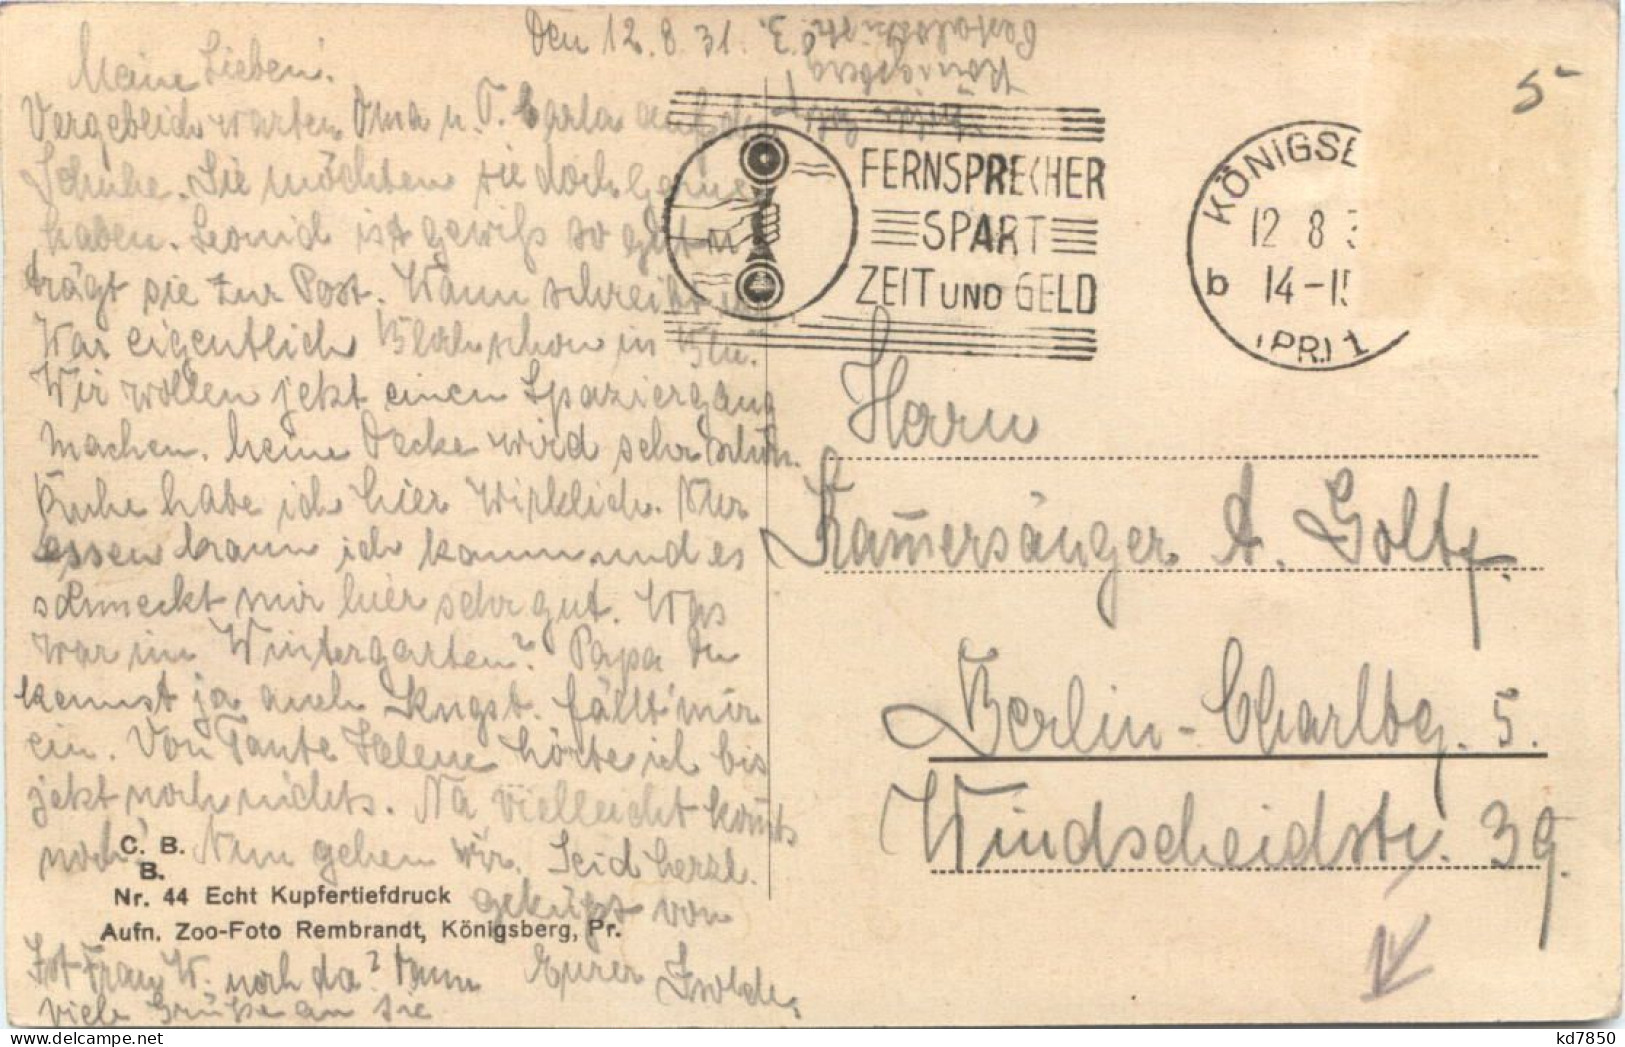 Den 12.8.31.
Meine Lieben!
Vergeblich warten Oma u. T. Carla auf die
Schuhe. Sie möchten sie doch gerne
haben. Leonid ist gewiß so gut u.
trägt sie zur Post. Wann schreibt
War eigentlich schon in
Wir wollen jetzt einen Spaziergang
machen. meine Decke wird sehr schön.
Ruhe habe ich hier wirklich. Nur
essen kann ich kaum und es
schmeckt mir hier sehr gut. Was
war im Wintergarten? Papa Du
kennst ja auch fällt mir
ein. Von Tante Helene hörte ich bis
jetzt noch nichts. Na vielleicht kommts
noch! Nun gehen wir. Seid herzl.
geküßt von
Eurer Isolde.
Ist Frau W. noch da? Dann
viele Grüße an sie
Königsberg
FERNSPRECHER
SPART
ZEIT UND GELD
KÖNIGSB
12 8 3
b 14-15
(PR.) 1
5-
Herrn
Kammersänger A. Goltz.
Berlin-Charltbg. 5.
Windscheidstr. 39.
C. B.
B.
Nr. 44 Echt Kupfertiefdruck
Aufn. Zoo-Foto Rembrandt, Königsberg, Pr.
kd7850